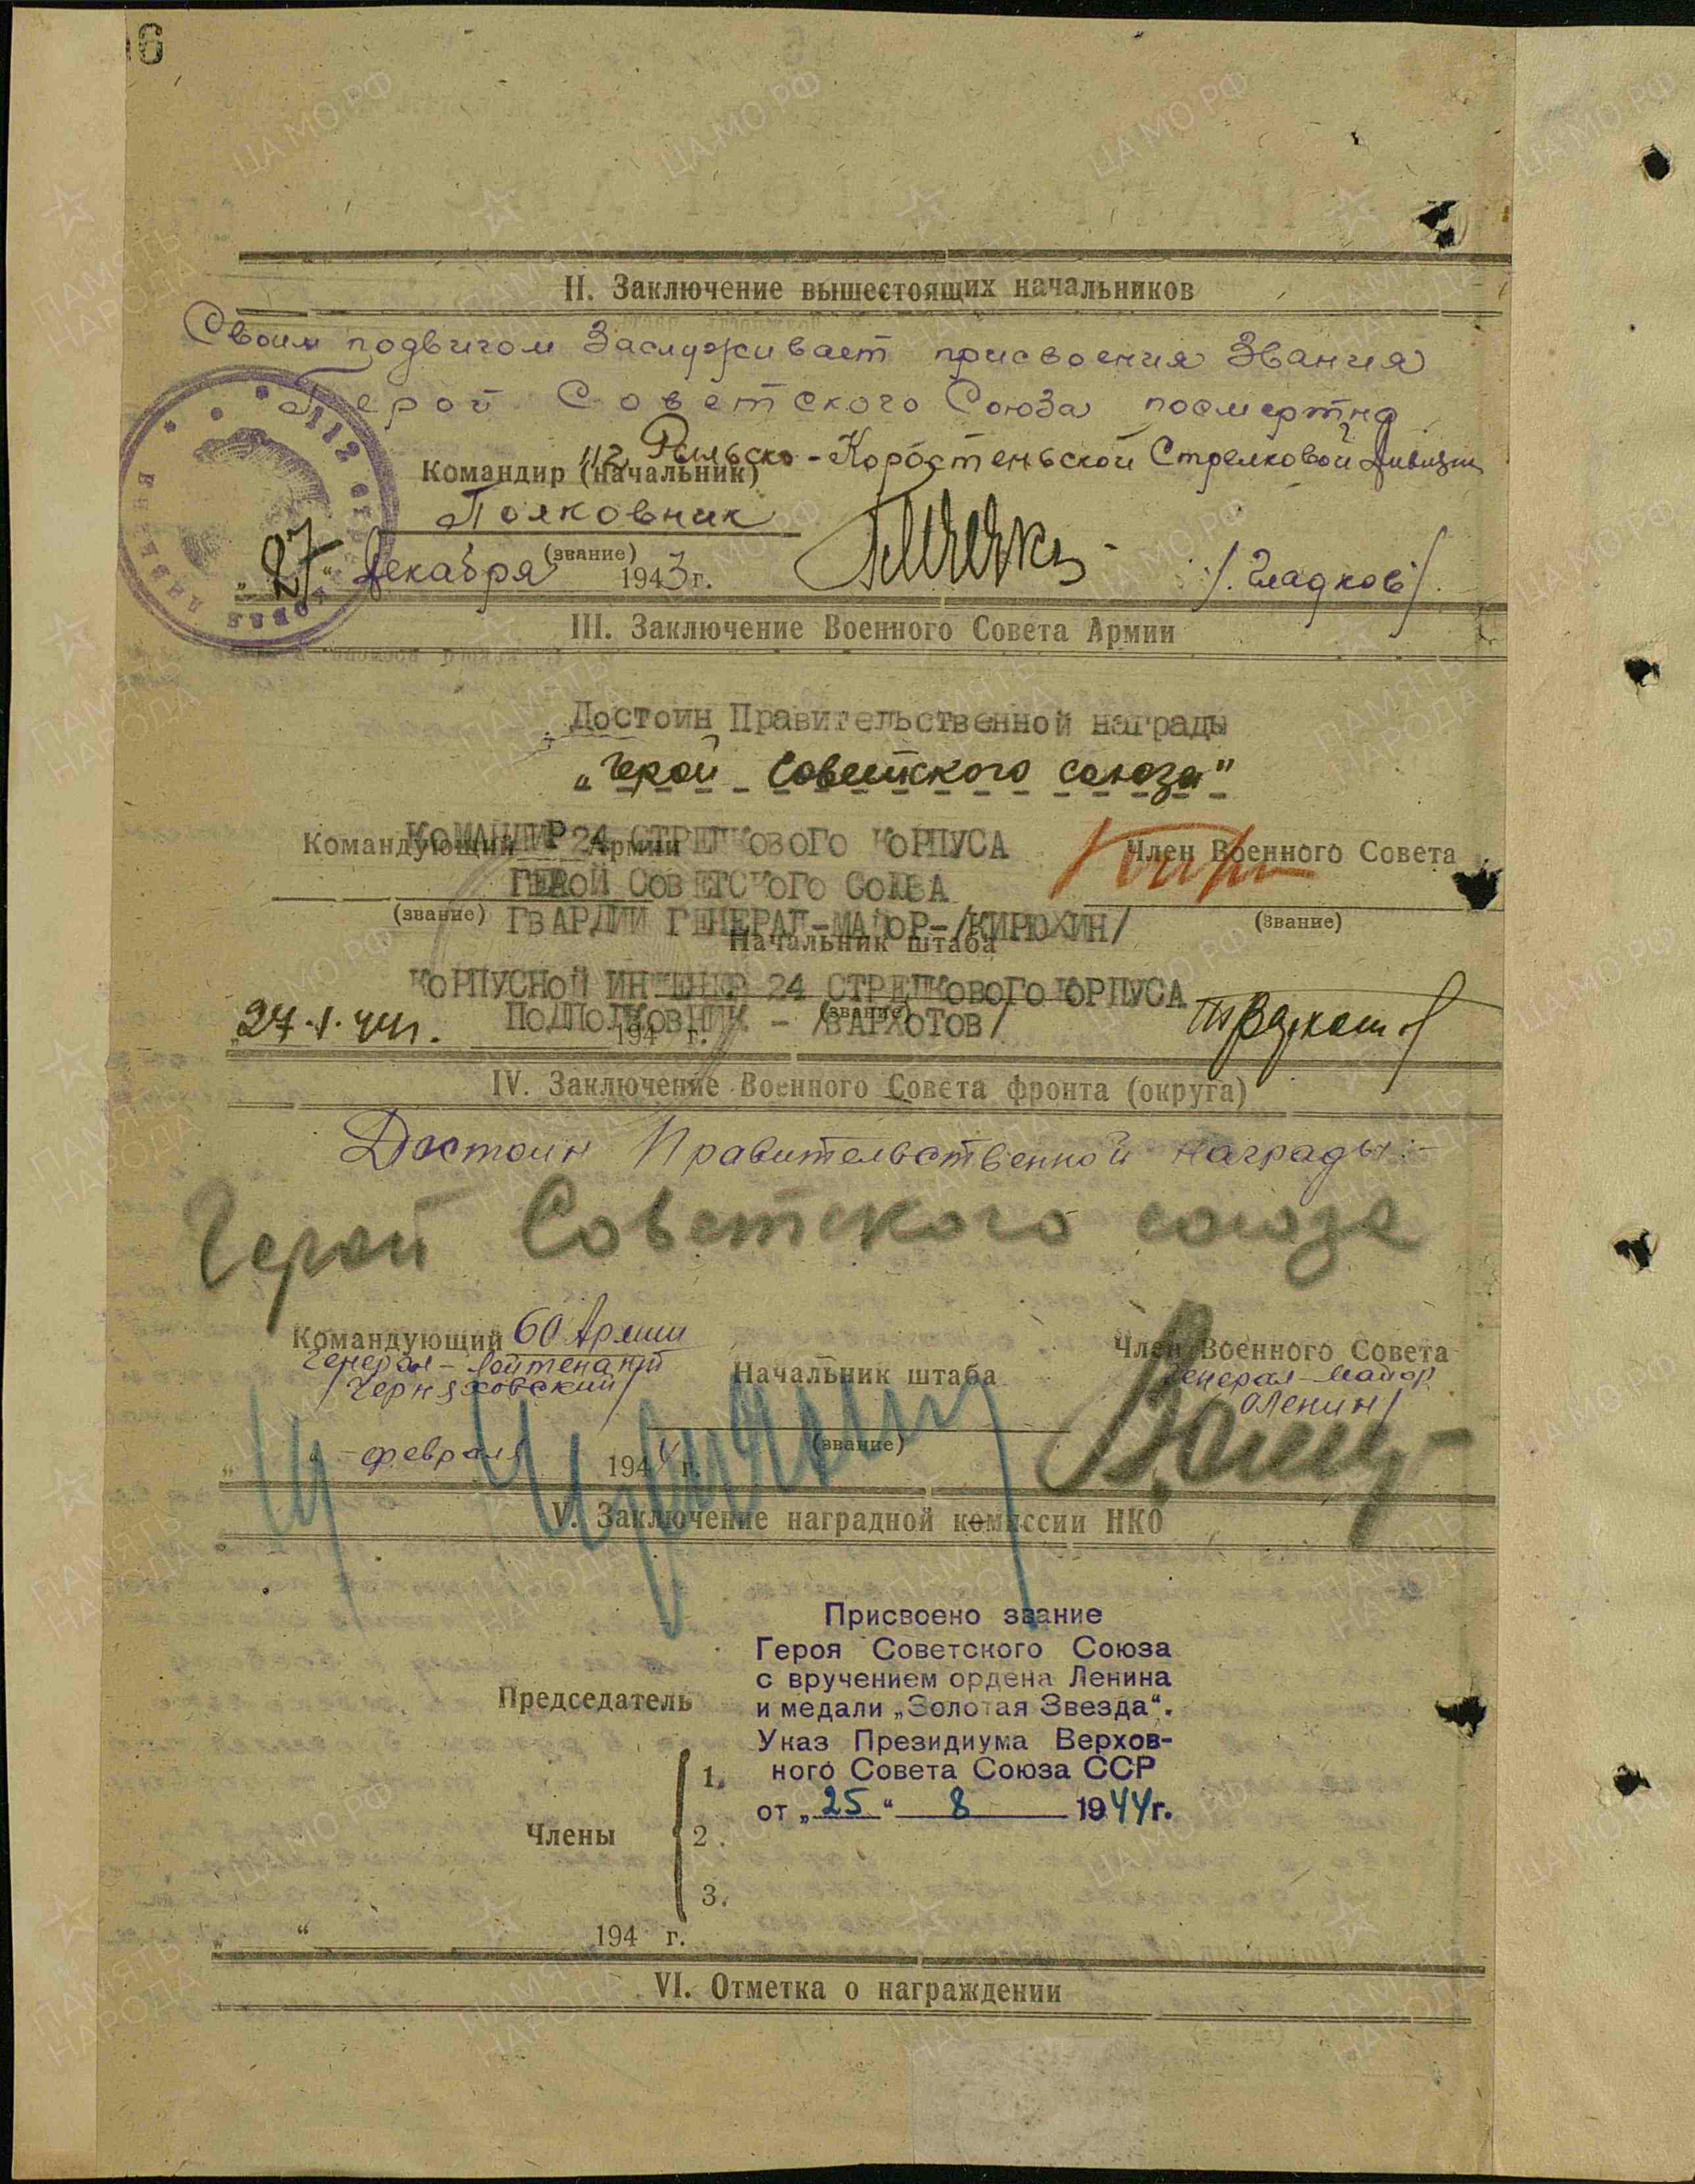 6
II. Заключение вышестоящих начальников
Своим подвигом Заслуживает присвоения Звания
Герой Советского Союза посмертно
Командир (начальник) 112 Рыльско-Коростеньской Стрелковой Дивизии
Полковник
(звание)
"27" Декабря 1943 г.
/Гладков/
III. Заключение Военного Совета Армии
Достоин Правительственной награды
"Герой Советского союза"
Командующий Армии
КОМАНДИР 24 СТРЕЛКОВОГО КОРПУСА
Член Военного Совета
ГЕРОЙ СОВЕТСКОГО СОЮЗА
(звание)
ГВАРДИИ ГЕНЕРАЛ-МАЙОР-/КИРЮХИН/
(звание)
Начальник штаба
КОРПУСНОЙ ИНЖЕНЕР 24 СТРЕЛКОВОГО КОРПУСА
(звание)
27.1.44г.
ПОДПОЛКОВНИК - /ВАРХОТОВ/
194 г.
IV. Заключение Военного Совета фронта (округа)
Достоин Правительственной награды:-
Герой Советского союза
Командующий 60 Армии
Генерал-Лейтенант
/Черняховский/
Начальник штаба
(звание)
Член Военного Совета
Генерал-Майор
/Оленин/
" " февраля 1944 г.
V. Заключение наградной комиссии НКО
Присвоено звание
Героя Советского Союза
с вручением ордена Ленина
и медали „Золотая Звезда“.
Указ Президиума Верхов-
ного Совета Союза ССР
от „25“ 8 1944г.
Председатель
Члены
1.
2.
3.
" " 194 г.
VI. Отметка о награждении
ПАМЯТЬ НАРОДА
ЦАМО.РФ